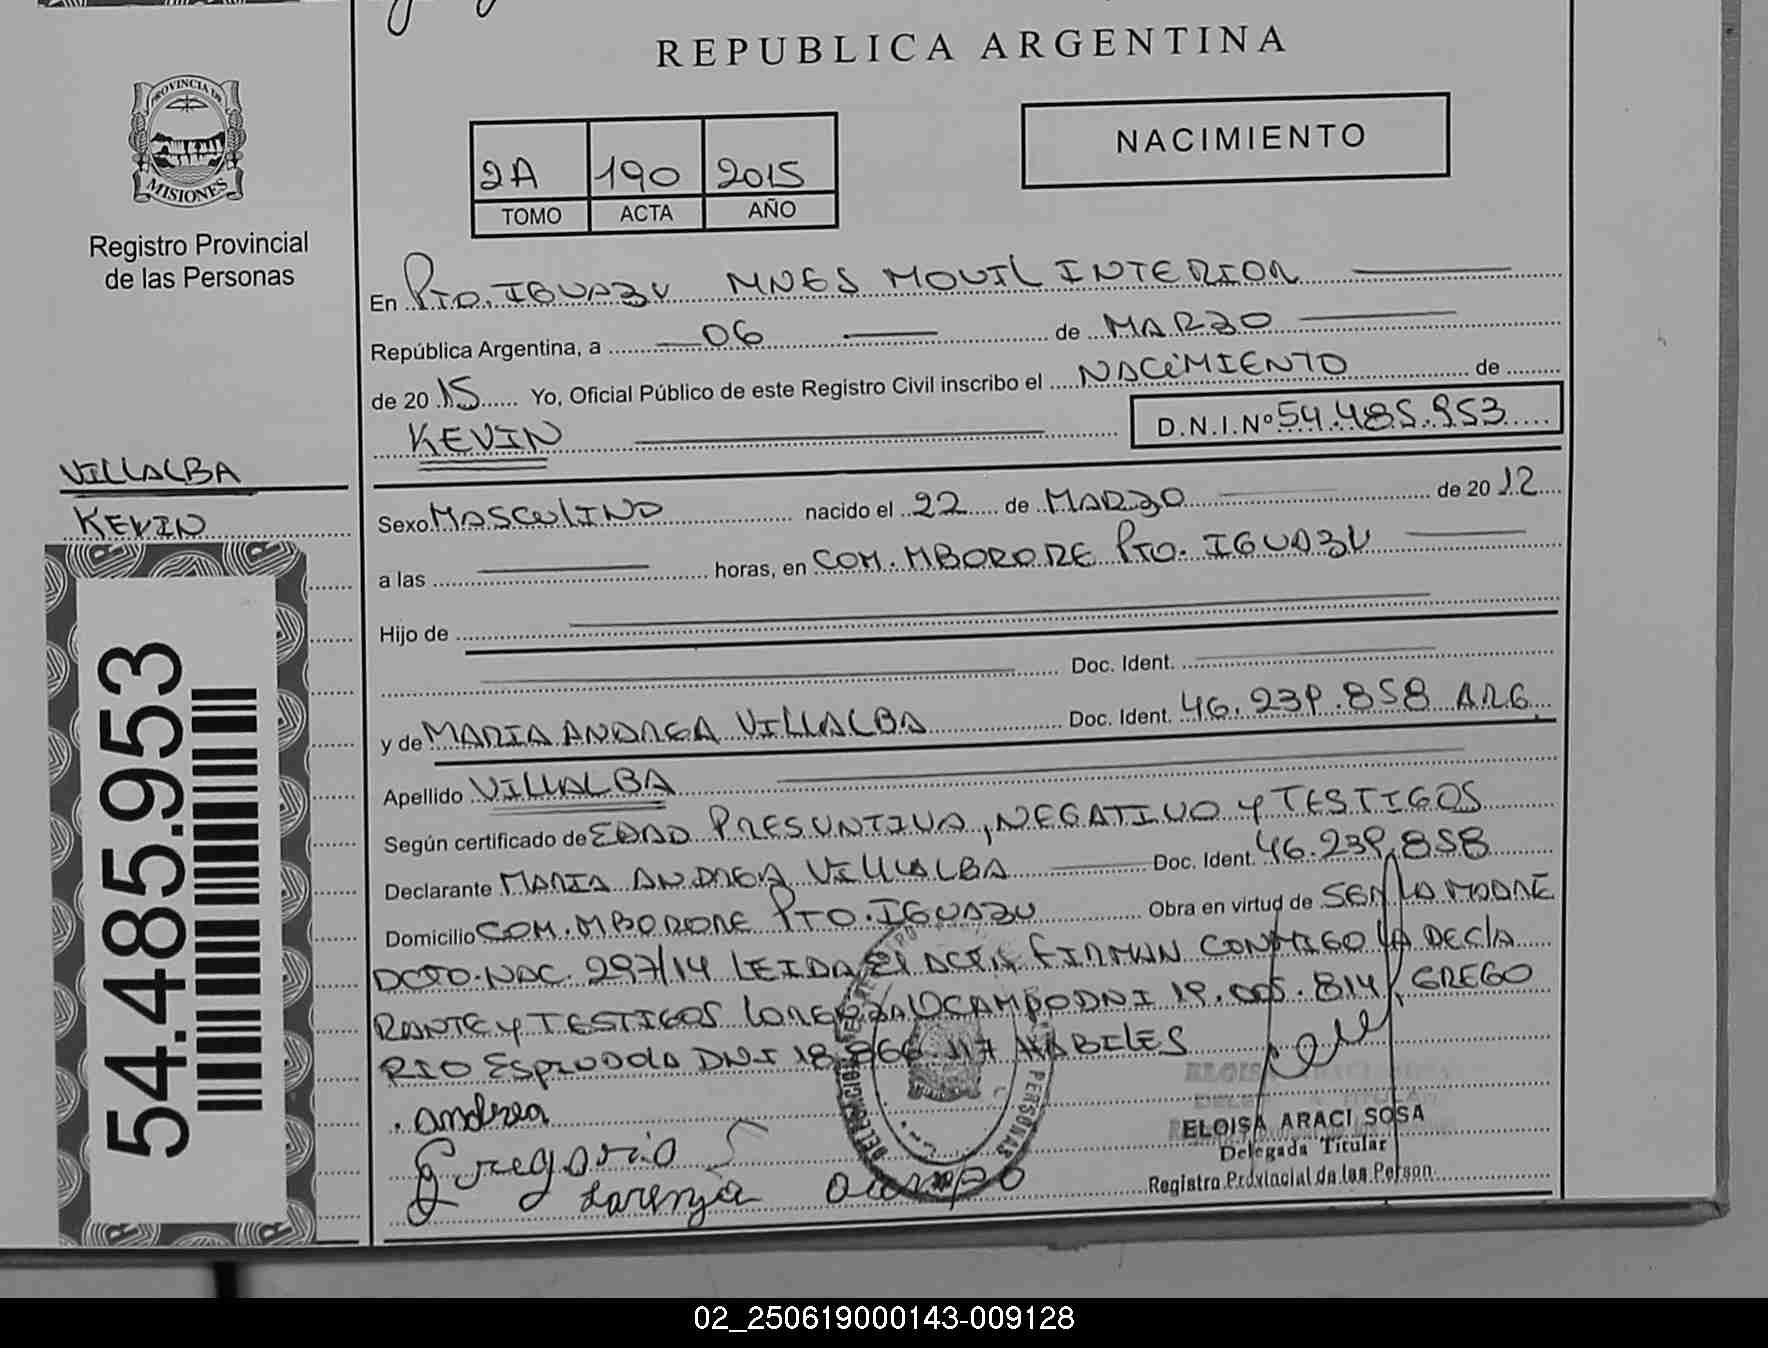 REPUBLICA ARGENTINA
PROVINCIA DE
MISIONES
Registro Provincial
de las Personas
2A 190 2015
TOMO ACTA AÑO
NACIMIENTO
En Pto. IGUAZU MNES MOVIL INTERIOR
República Argentina, a 06 de MARZO
de 20 15 Yo, Oficial Público de este Registro Civil inscribo el NACIMIENTO de
KEVIN D.N.I.Nº 54.485.953
VILLALBA
KEVIN
54.485.953
Sexo MASCULINO nacido el 22 de MARZO de 20 12
a las horas, en COM. MBORORE Pto. IGUAZU
Hijo de
Doc. Ident.
y de MARIA ANDREA VILLALBA Doc. Ident. 46.239.858 ARG.
Apellido VILLALBA
Según certificado de EDAD PRESUNTIVA, NEGATIVO y TESTIGOS
Declarante MARIA ANDREA VILLALBA Doc. Ident. 46.239.858
Domicilio COM. MBORORE Pto. IGUAZU Obra en virtud de SER LA MADRE
DCTO. NAC. 297/14 LEIDA EL ACTA FIRMAN CONMIGO LA DECLA
RANTE y TESTIGOS LORENZA OCAMPO DNI 19.005.814, GREGO
RIO DNI 18.866.117 HABILES
. andrea
Gregorio
Lorenza Ocampo
ELOISA ARACI SOSA
Delegada Titular
Registro Provincial de las Person.
02_250619000143-009128